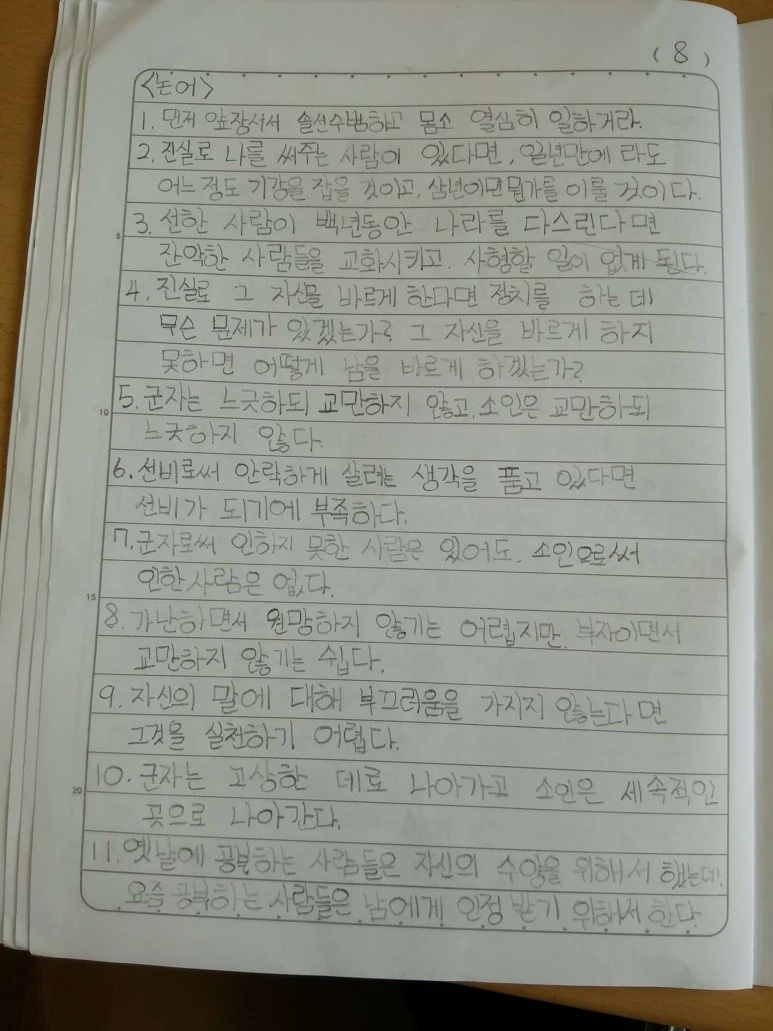 ( 8 )
<논어>
1. 먼저 앞장서서 솔선수범하고 몸소 열심히 일하거라.
2. 진실로 나를 써주는 사람이 있다면, 일년만에 라도
어느 정도 기강을 잡을 것이고, 삼년이면 뭔가를 이룰 것이다.
3. 선한 사람이 백년동안 나라를 다스린다면
5
잔악한 사람들을 교화시키고, 사형할 일이 없게 된다.
4. 진실로 그 자신을 바르게 한다면 정치를 하는데
무슨 문제가 있겠는가? 그 자신을 바르게 하지
못하면 어떻게 남을 바르게 하겠는가?
5. 군자는 느긋하되 교만하지 않고, 소인은 교만하되
10
느긋하지 않다.
6. 선비로써 안락하게 살려는 생각을 품고 있다면
선비가 되기에 부족하다.
7. 군자로써 인하지 못한 사람은 있어도, 소인으로써
인한 사람은 없다.
15
8. 가난하면서 원망하지 않기는 어렵지만, 부자이면서
교만하지 않기는 쉽다.
9. 자신의 말에 대해 부끄러움을 가지지 않는다면
그것을 실천하기 어렵다.
10. 군자는 고상한 데로 나아가고 소인은 세속적인
20
곳으로 나아간다.
11. 옛날에 공부하는 사람들은 자신의 수양을 위해서 했는데,
요즘 공부하는 사람들은 남에게 인정 받기 위해서 한다.